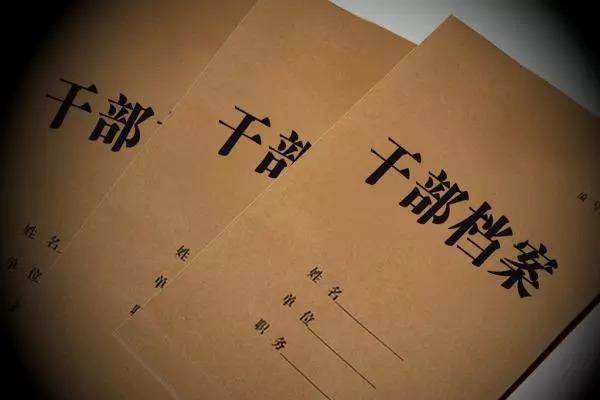 干部
姓名
单位
干部
姓
单
职
编号
干部档案
姓名
单位
职务